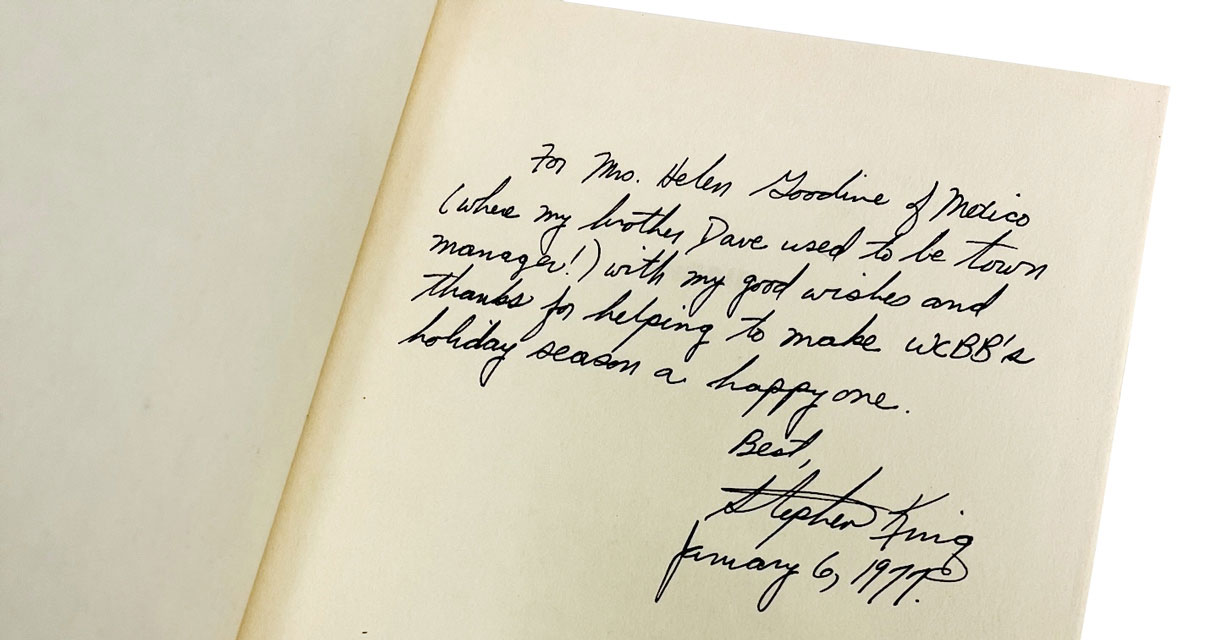 For Mrs. Helen Goodine of Mexico
(where my brother Dave used to be town
manager!) with my good wishes and
thanks for helping to make WCBB's
holiday season a happy one.
Best,
Stephen King
January 6, 1977.